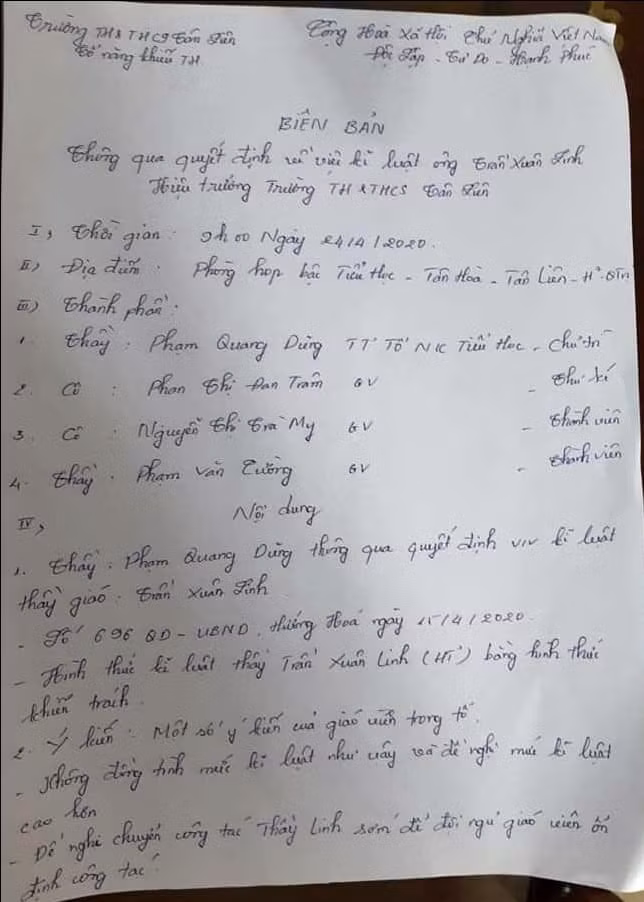 Trường TH & THCS Tân Liên Cộng Hoà Xã Hội Chủ Nghĩa Việt Nam
Tổ năng khiếu TH. Độc Lập - Tự Do - Hạnh Phúc
BIÊN BẢN
Thông qua quyết định về việc kỉ luật ông Trần Xuân Linh
Hiệu trưởng Trường TH & THCS Tân Liên
I, Thời gian: 9h00 Ngày 24/4/2020.
II) Địa điểm: Phòng họp bậc Tiểu Học - Tân Hoà - Tân Liên - H'
III) Thành phần:
1. Thầy: Phạm Quang Dũng TT Tổ NK Tiểu Học - Chủ trì
2. Cô: Phan Thị Đan Trâm GV - Thư kí
3. Cô: Nguyễn Thị Trà My GV - Thành viên
4. Thầy: Phạm Văn Cường GV - Thành viên
IV, Nội dung
1. Thầy: Phạm Quang Dũng thông qua quyết định v/v kỉ luật
thầy giáo: Trần Xuân Linh
- Số 696 QĐ-UBND, Hướng Hoá ngày 15/4/2020.
- Hình thức kỉ luật thầy Trần Xuân Linh (HT) bằng hình thức
khiển trách.
2. Ý kiến: Một số ý kiến của giáo viên trong tổ.
- Không đồng tình mức kỉ luật như vậy và đề nghị mức kỉ luật
cao hơn
- Đề nghị chuyển công tác Thầy Linh sớm để đội ngũ giáo viên ổn
định công tác.